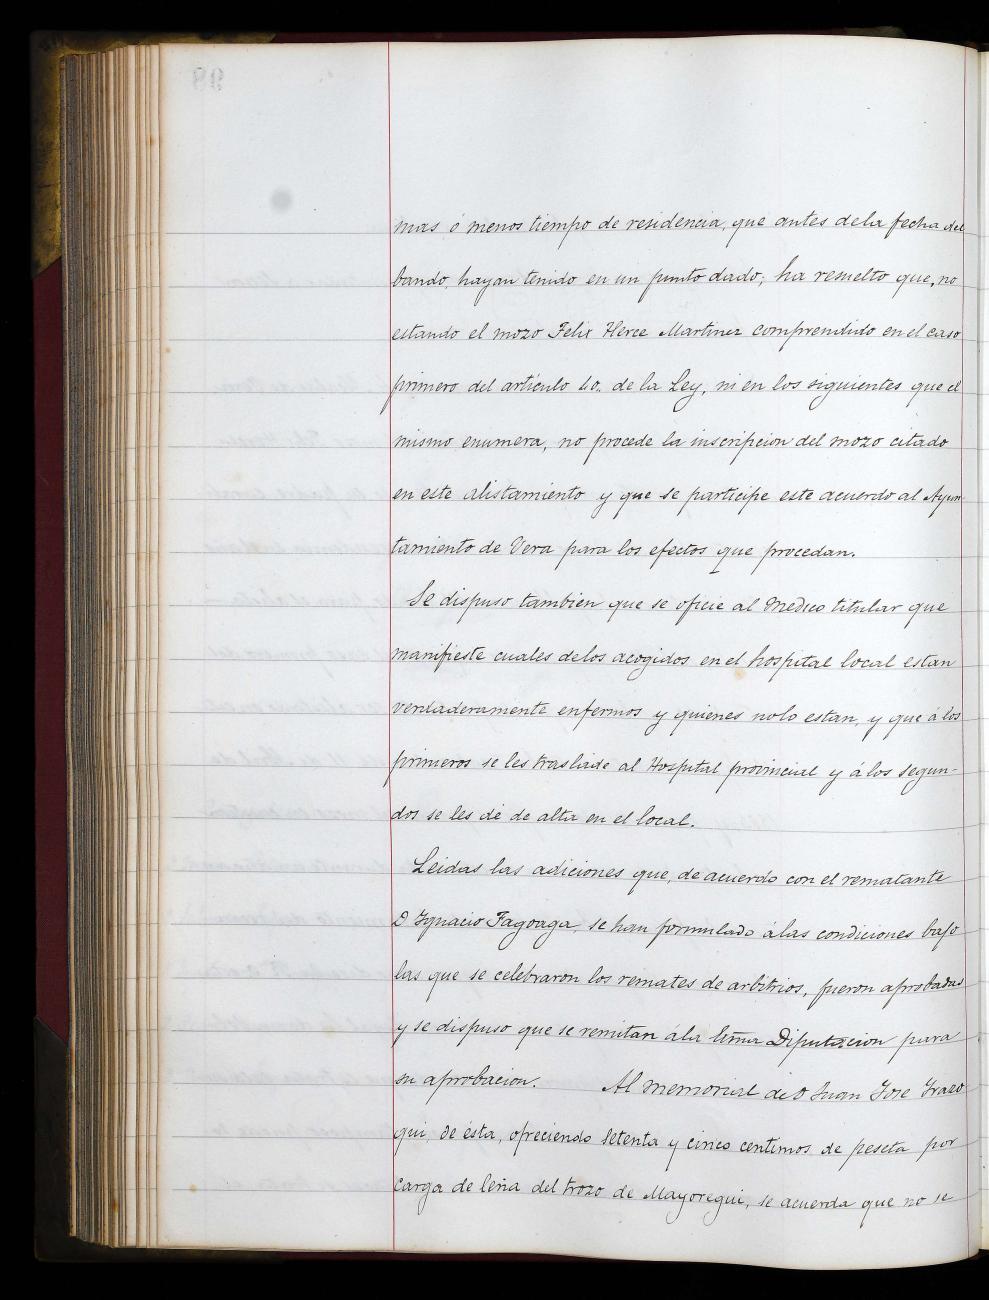 mas ó menos tiempo de residencia, que antes dela fecha del
bando, hayan tenido en un punto dado; ha resuelto que, no
estando el mozo Felix Herce Martinez comprendido en el caso
primero del artículo 40. de la Ley, ni en los siguientes que el
mismo enumera, no procede la inscripcion del mozo citado
en este alistamiento y que se participe este acuerdo al Ayun-
tamiento de Vera para los efectos que procedan.
Se dispuso tambien que se oficie al Medico titular que
manifieste cuales delos acogidos en el hospital local estan
verdaderamente enfermos y quienes nolo estan, y que á los
primeros se les traslade al Hospital provincial y á los segun-
dos se les dé de alta en el local.
Leidas las adiciones que, de acuerdo con el rematante
D Ygnacio Fagoaga, se han formulado álas condiciones bajo
las que se celebraron los remates de arbitrios, fueron aprobadas
y se dispuso que se remitan ála Diputacion para
su aprobacion. Al memorial de D Juan Jose Yrazo
qui, de ésta, ofreciendo setenta y cinco centimos de peseta por
carga de leña del trozo de Mayoregui, se acuerda que no se